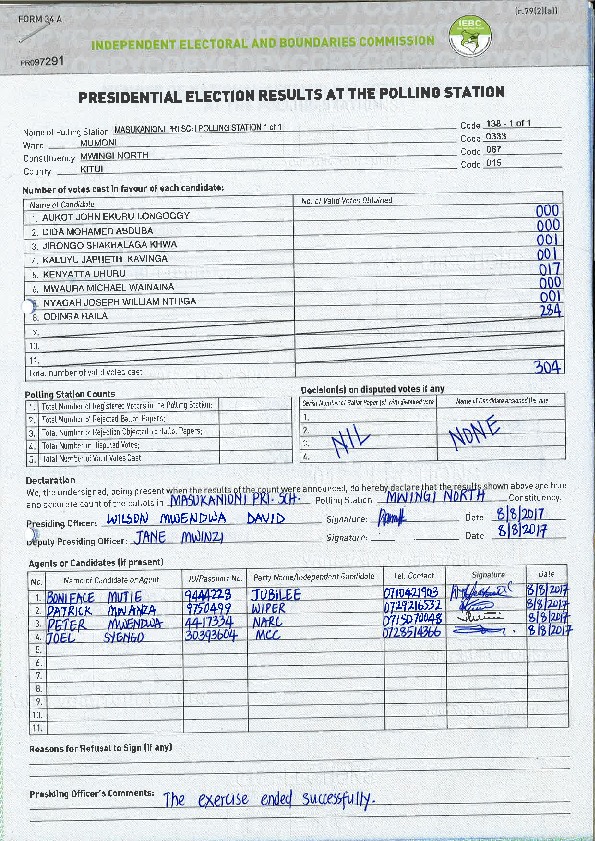 FORM 34 A
(r.79(2)(a))
INDEPENDENT ELECTORAL AND BOUNDARIES COMMISSION
IEBC
PR097291
PRESIDENTIAL ELECTION RESULTS AT THE POLLING STATION
Name of Polling Station MASUKANIONI PRI SCH POLLING STATION 1 of 1 Code 138 - 1 of 1
Ward MUMONI Code 0333
Constituency MWINGI NORTH Code 067
County KITUI Code 015
Number of votes cast in favour of each candidate:
Name of Candidate No. of Valid Votes Obtained
1. AUKOT JOHN EKURU LONGOGGY 000
2. DIDA MOHAMED ABDUBA 000
3. JIRONGO SHAKHALAGA KHWA 001
4. KALUYU JAPHETH KAVINGA 001
5. KENYATTA UHURU 017
6. MWAURA MICHAEL WAINAINA 000
7. NYAGAH JOSEPH WILLIAM NTHIGA 001
8. ODINGA RAILA 284
9.
10.
11.
Total number of valid votes cast 304
Polling Station Counts
1. Total Number of Registered Voters in the Polling Station;
2. Total Number of Rejected Ballot Papers;
3. Total Number of Rejection Objected to Ballot Papers;
4. Total Number of Disputed Votes;
5. Total Number of Valid Votes Cast
Decision(s) on disputed votes if any
Serial Number of Ballot Paper (s) with disputed vote
1.
2.
3.
4.
NIL NONE
Declaration
We, the undersigned, being present when the results of the count were announced, do hereby declare that the results shown above are true
and accurate count of the ballots in MASUKANIONI PRI. SCH. Polling Station MWINGI NORTH Constituency.
Presiding Officer: WILSON MWENDWA DAVID Signature: Date 8/8/2017
Deputy Presiding Officer: JANE MWINZI Signature: Date 8/8/2017
Agents or Candidates (if present)
No. Name of Candidate or Agent ID/Passport No. Party Name/Independent Candidate Tel. Contact Signature Date
1. BONIFACE MUTIE 9444228 JUBILEE 0710421903 8/8/2017
2. PATRICK MWANZA 9750499 WIPER 0729216532 8/8/2017
3. PETER MWENDWA 4417334 NARC 0715070048 8/8/2017
4. JOEL SYENGO 30393604 MCC 0728514366 8/8/2017
5.
6.
7.
8.
9.
10.
11.
Reasons for Refusal to Sign (if any)
Presiding Officer's Comments: The exercise ended successfully.